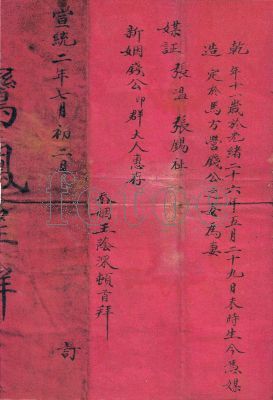 乾
造 年十一歲於光緒二十六年五月二十九日未時生今憑媒
定於馬方營錢公之女為妻
媒証 張溫 張錫祉
新姻錢公印群大人惠存
眷姻王蔭深頓首拜
宣統二年七月初二日 喜
鸞鳳呈祥